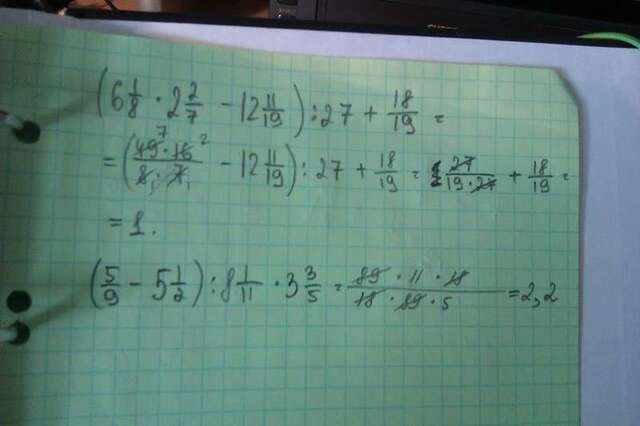 (6 1/8 · 2 2/7 - 12 11/19) : 27 + 18/19 =
= (49·16/8·7 - 12 11/19) : 27 + 18/19 = 27/19·27 + 18/19 =
= 1.
(5/9 - 5 1/2) : 8 1/11 · 3 3/5 = 89·11·18/18·89·5 = 2,2